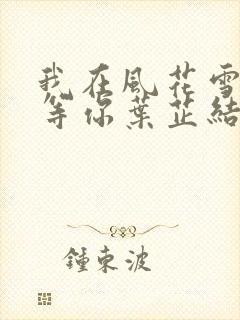 我在風花雪
等你葉芷結
鍾東波